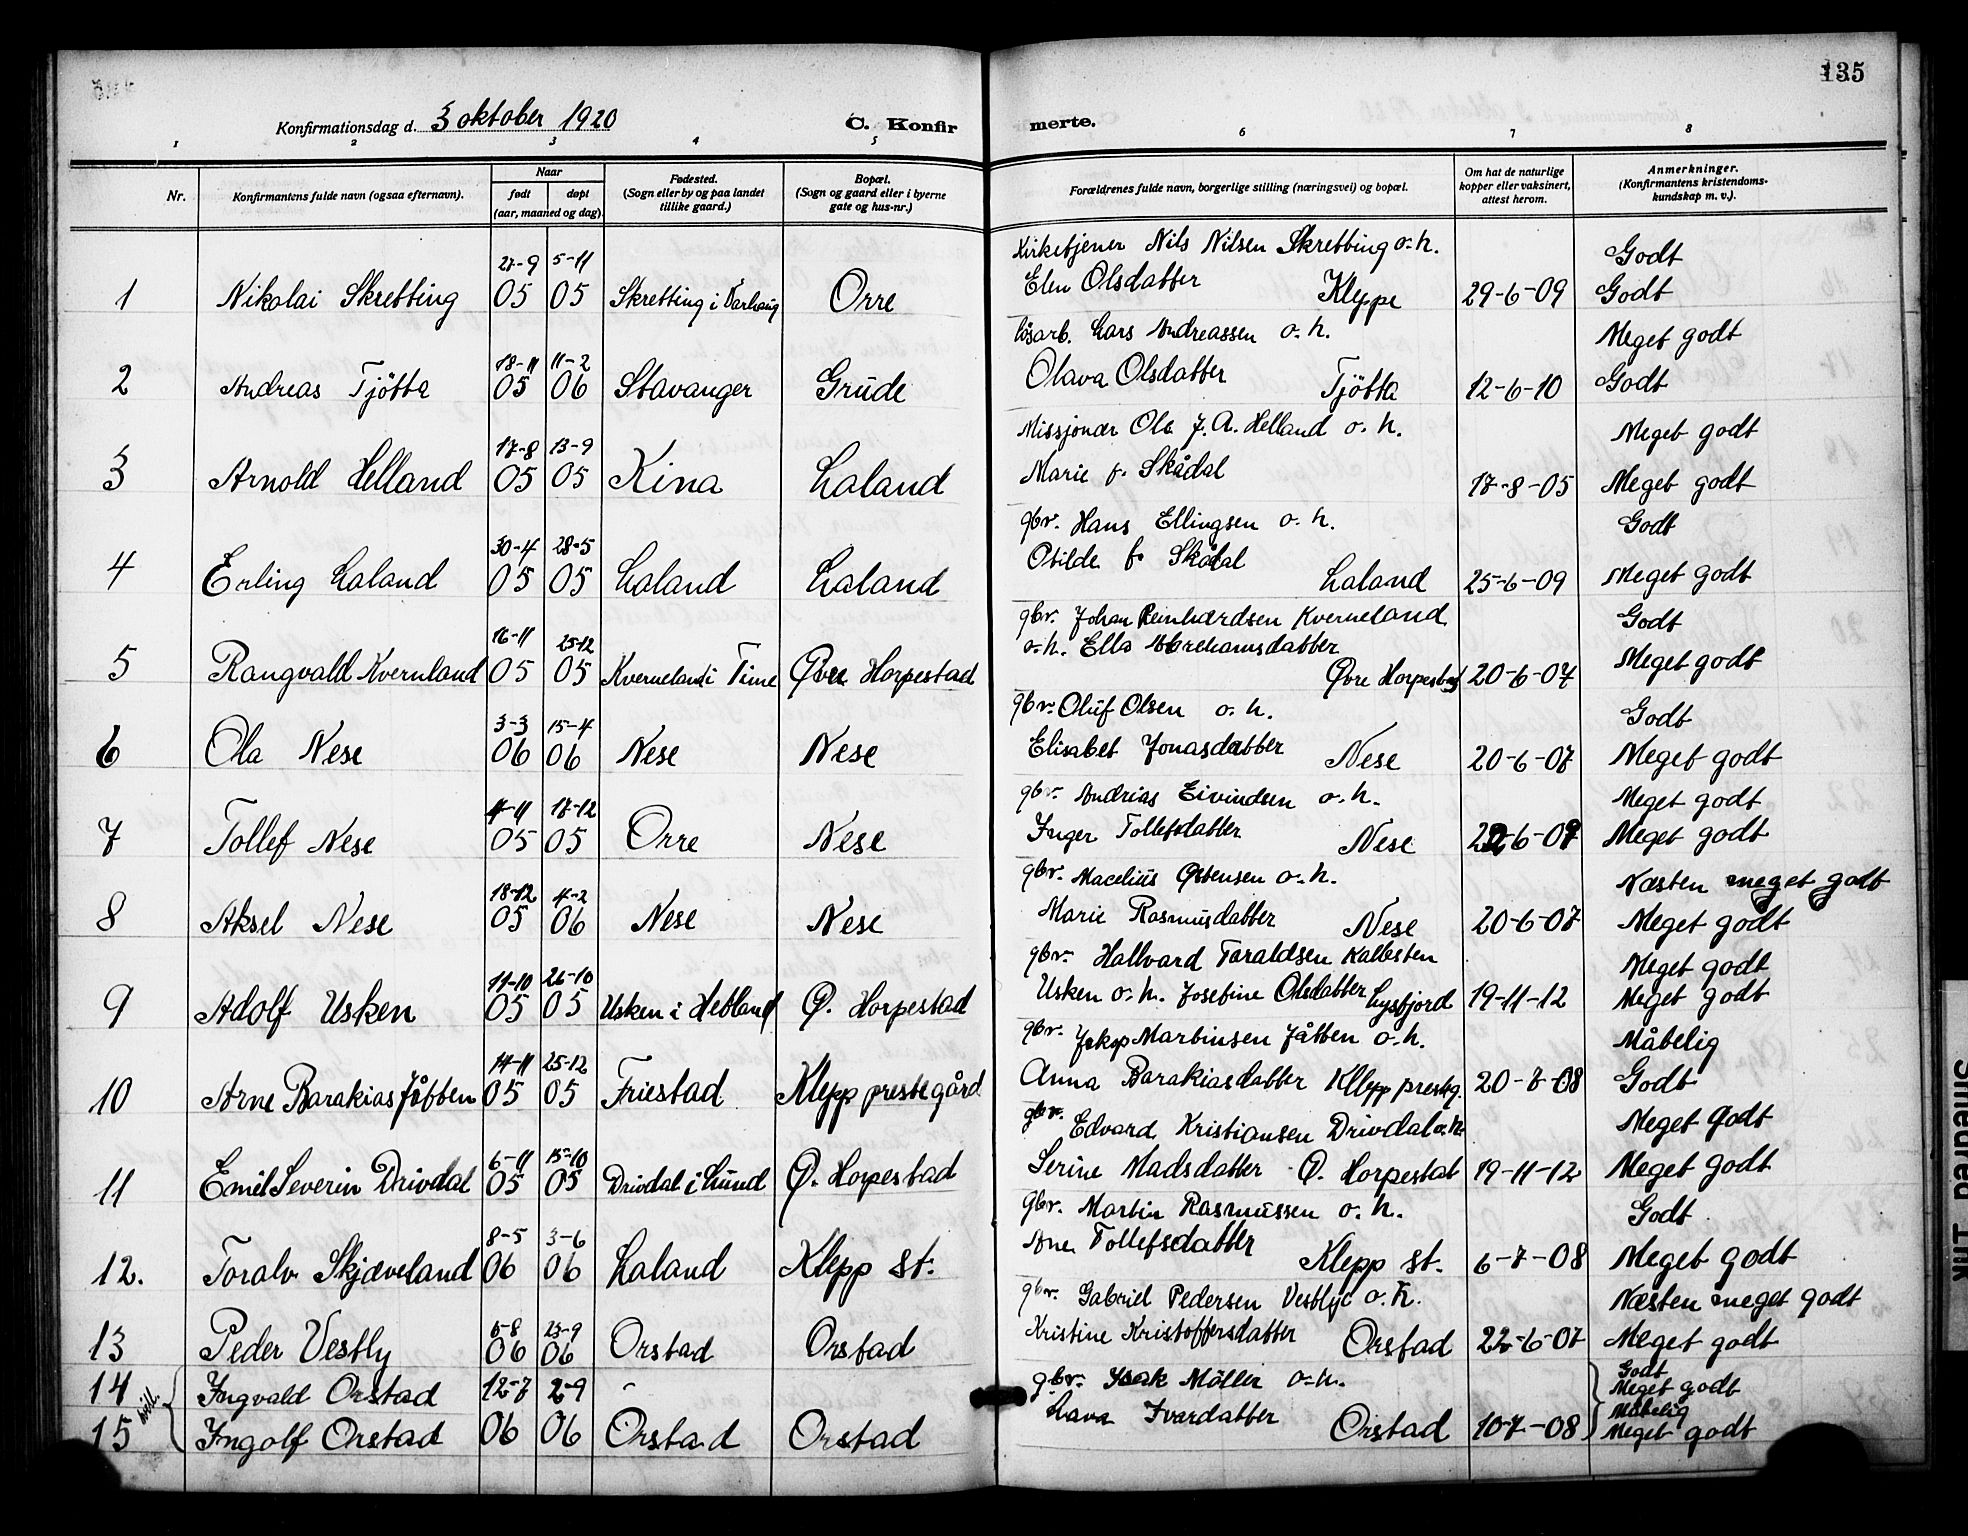 135
Konfirmationsdag d. 3 oktober 1920 C. Konfirmerte.
1 2 3 4 5 6 7 8
Nr. Konfirmantens fulde navn (ogsaa efternavn). Naar født døpt (aar, maaned og dag). Fødested. (Sogn eller by og paa landet tillike gaard.) Bopæl. (Sogn og gaard eller i byerne gate og hus-nr.) Forældrenes fulde navn, borgerlige stilling (næringsvei) og bopæl. Om hat de naturlige kopper eller vaksinert, attest herom. Anmerkninger. (Konfirmantens kristendomskundskap m. v.).
27-9 5-11 Kirketjener Nils Nilsen Skretting o. h. Godt
1 Nikolai Skretting 05 05 Skretting i Varhaug Orre Elen Olsdatter Kleppe 29-6-09 Godt
18-11 11-2 løsarb. Lars Andreassen o. h. Meget godt
2 Andreas Tjötta 05 06 Stavanger Grude Olava Olsdatter Tjötta 12-6-10 Godt
17-8 13-9 Missjonær Ole J. A. Helland o. h. Meget godt
3 Arnold Helland 05 05 Kina Laland Marie f. Skådal 17-8-05 Meget godt
30-4 28-5 gbr. Hans Ellingsen o. h. Godt
4 Erling Laland 05 05 Laland Laland Otilde f. Skådal Laland 25-6-09 Meget godt
16-11 25-12 gbr. Johan Reinhardsen Kverneland Godt
5 Rangvald Kvernland 05 05 Kverneland i Time Øvre Horpestad o. h. Ella Øvre Horpestad 20-6-07 Meget godt
3-3 15-4 gbr. Oluf Olsen o. h. Godt
6 Ola Nese 06 06 Nese Nese Elisabet Jonasdatter Nese 20-6-07 Meget godt
4-11 17-12 gbr. Andrias Eivindsen o. h. Meget godt
7 Tollef Nese 05 05 Orre Nese Inger Tollefsdatter Nese 22-6-09 Meget godt
18-12 4-2 gbr. Macelius Østensen o. h. Næsten meget godt
8 Aksel Nese 05 06 Nese Nese Marie Rasmusdatter Nese 20-6-07 Meget godt
11-10 26-10 gbr. Hallvard Taraldsen Kallesten Meget godt
9 Adolf Usken 05 05 Usken i Hetland Ø. Horpestad Usken o. h. Josefine Olsdatter Lysefjord 19-11-12 Meget godt
gbr. Jakop Martinsen Jåtten o. h. Måbelig
14-11 25-12
10 Arne Barakias Jåtten 05 05 Friestad Klepp prestegård Anna Barakiasdatter Klepp prestg. 20-7-08 Godt
gbr. Edvard Kristiansen Drivdal o. h. Meget godt
6-11 15-10
11 Emil Severin Drivdal 05 05 Drivdal i Lund Ø. Horpestad Serine Madsdatter Ø. Horpestat 19-11-12 Meget godt
8-5 3-6 gbr. Martin Rasmussen o. h. Godt
12. Toralv Skjæveland 06 06 Laland Klepp st. Ane Tollefsdatter Klepp st. 6-7-08 Meget godt
gbr. Gabriel Pedersen Vestly o. h. Næsten meget godt
6-8 23-9
13 Peder Vestly 06 06 Orstad Orstad Kristine Kristoffersdatter Orstad 22-6-07 Meget godt
14 Ingvald Orstad 12-7 2-9 gbr. Isak Möller o. h. Godt
Meget godt
tvill. Lava Ivardatter Måbelig
15 Ingolf Orstad 06 06 Orstad Orstad Orstad 10-7-08 Meget godt